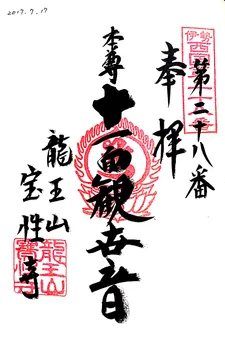 2017.7.17
伊勢
西国
第二十八番
奉拝
本尊
十一面観世音
龍王山
宝性寺
龍王山
寳性寺